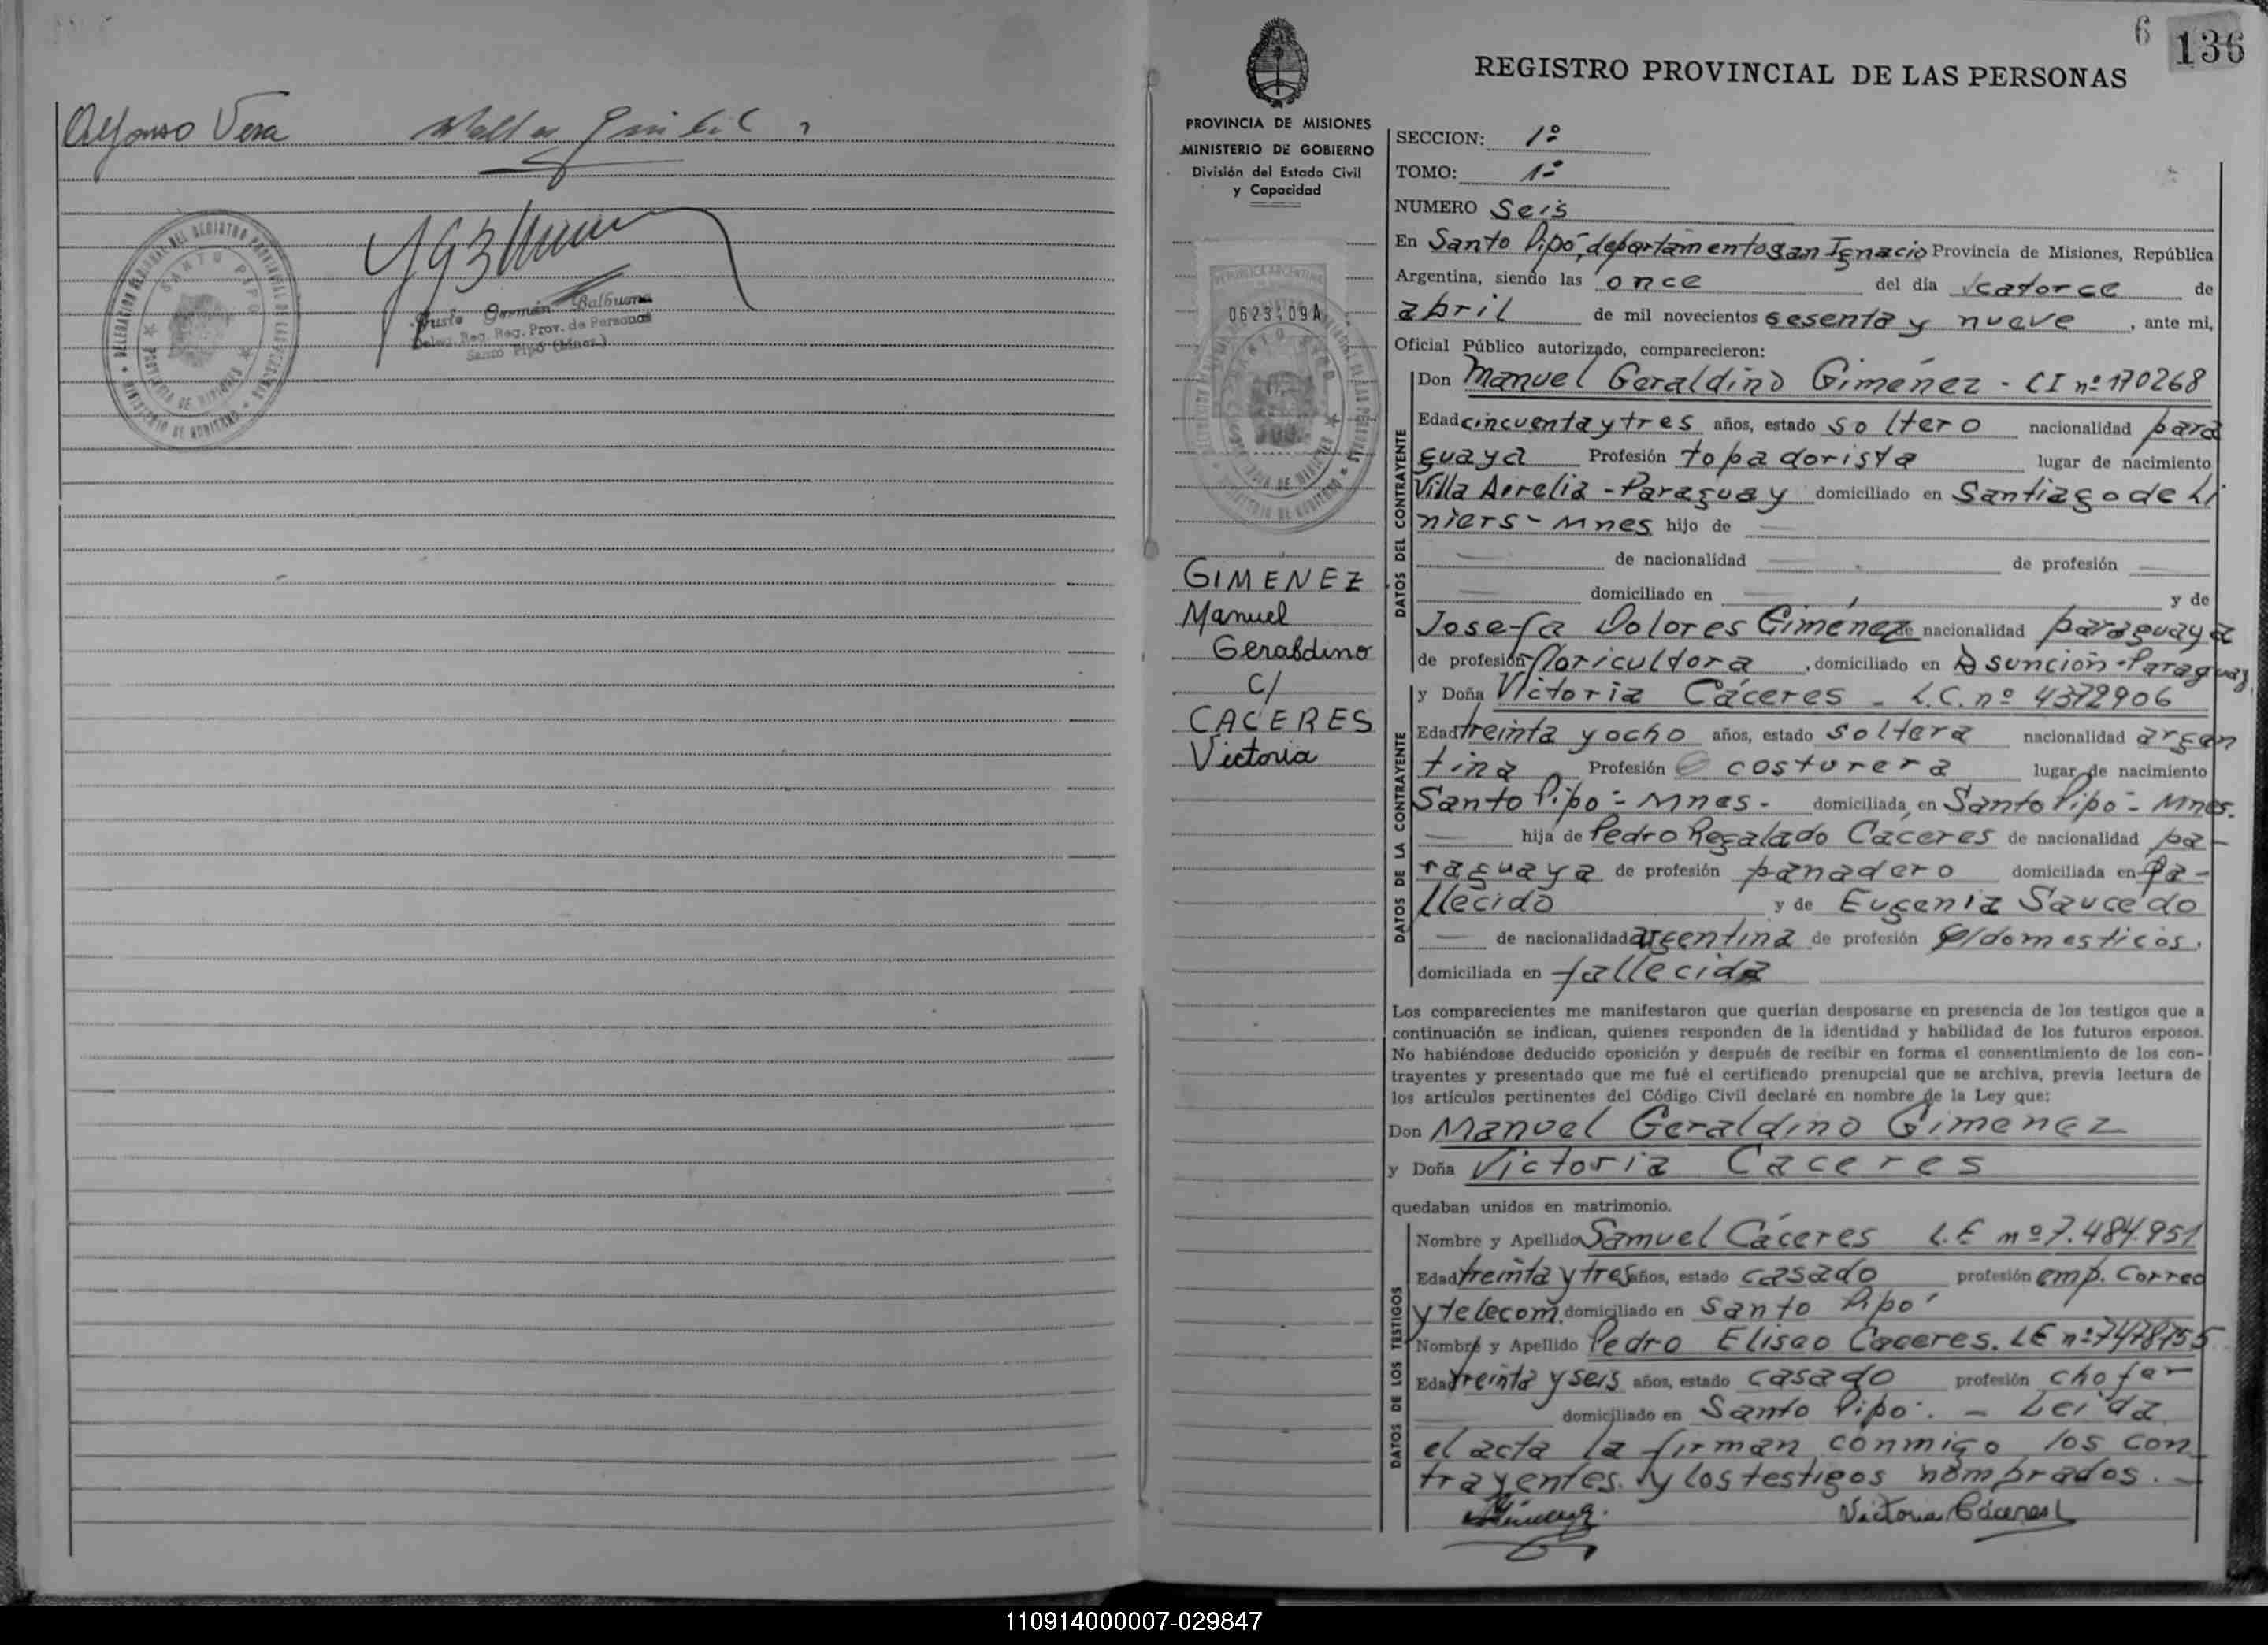 Alfonso Vera
DELEGACION REGIONAL DEL REGISTRO PROVINCIAL DE LAS PERSONAS
SANTO PIPO
PROVINCIA DE MISIONES
MINISTERIO DE GOBIERNO
Justo Germán Balbuena
Deleg. Reg. Reg. Prov. de Personas
Santo Pipó (Mnes.)
6 136
REGISTRO PROVINCIAL DE LAS PERSONAS
PROVINCIA DE MISIONES
MINISTERIO DE GOBIERNO
División del Estado Civil
y Capacidad
REPUBLICA ARGENTINA
0623409A
GIMENEZ
Manuel
Geraldino
C/
CACERES
Victoria
SECCION: 1º
TOMO: 1º
NUMERO Seis
En Santo Pipó, departamento San Ignacio Provincia de Misiones, República
Argentina, siendo las once del día catorce de
abril de mil novecientos sesenta y nueve, ante mi,
Oficial Público autorizado, comparecieron:
DATOS DEL CONTRAYENTE
Don Manuel Geraldino Giménez - CI nº 170268
Edad cincuenta y tres años, estado soltero nacionalidad para
guaya Profesión topadorista lugar de nacimiento
Villa Aurelia - Paraguay domiciliado en Santiago de Li
niers - Mnes hijo de
de nacionalidad de profesión
domiciliado en y de
Josefa Dolores Giménez de nacionalidad paraguaya
de profesión floricultora, domiciliado en Asunción - Paraguay
DATOS DE LA CONTRAYENTE
y Doña Victoria Cáceres - L.C. nº 4372906
Edad treinta y ocho años, estado soltera nacionalidad argen
tina Profesión costurera lugar de nacimiento
Santo Pipó - Mnes - domiciliada en Santo Pipó - Mnes.
hija de Pedro Regalado Cáceres de nacionalidad pa-
raguaya de profesión panadero domiciliada en fa-
llecido y de Eugenia Saucedo
de nacionalidad argentina de profesión q/domesticos.
domiciliada en fallecida
Los comparecientes me manifestaron que querían desposarse en presencia de los testigos que a
continuación se indican, quienes responden de la identidad y habilidad de los futuros esposos.
No habiéndose deducido oposición y después de recibir en forma el consentimiento de los con-
trayentes y presentado que me fué el certificado prenupcial que se archiva, previa lectura de
los artículos pertinentes del Código Civil declaré en nombre de la Ley que:
Don Manuel Geraldino Gimenez
y Doña Victoria Caceres
quedaban unidos en matrimonio.
DATOS DE LOS TESTIGOS
Nombre y Apellido Samuel Cáceres L.E nº 7.484.951
Edad treinta y tres años, estado casado profesión emp. Correo
y telecom. domiciliado en Santo Pipó
Nombre y Apellido Pedro Eliseo Caceres. LE nº 7478755
Edad treinta y seis años, estado casado profesión chofer
domiciliado en Santo Pipó. - Leída
el acta la firman conmigo los con
trayentes y los testigos nombrados. -
Victoria Cáceres
110914000007-029847